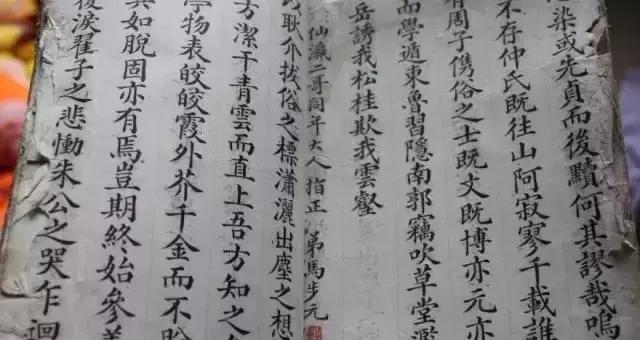 染或先貞而後黷何其謬哉嗚
不存仲氏既往山阿寂寥千載誰
有周子儁俗之士既文既博亦元亦
而學遁東魯習隱南郭竊吹草堂濫
岳誘我松桂欺我雲壑
仙瀛二哥同年大人 指正 弟馬步元
耿介拔俗之標瀟灑出塵之想
方潔干青雲而直上吾方知之
物表皎皎霞外芥千金而不盼
其如脫固亦有焉豈期終始參差
淚翟子之悲慟朱公之哭乍迴